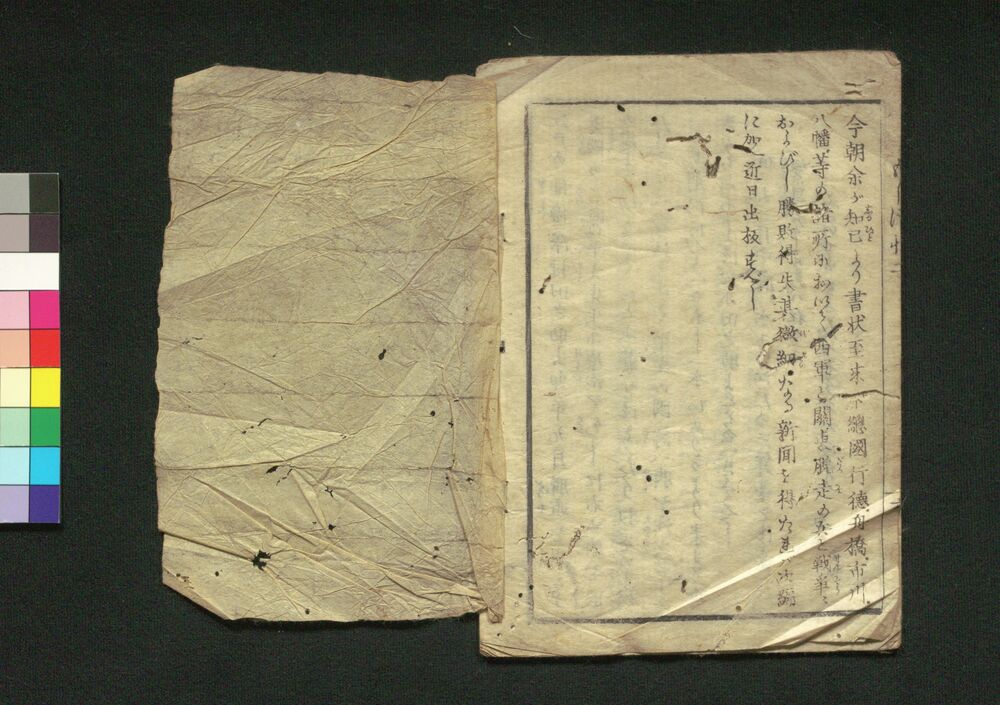 今朝余が知己より書状至来下總國行德舟橋市川
八幡等の諸所に於いて西軍と關東脱走の兵と戰爭に
およびし勝敗得失其微細なる新聞を得たれば次編
に加へ近日出板すべし